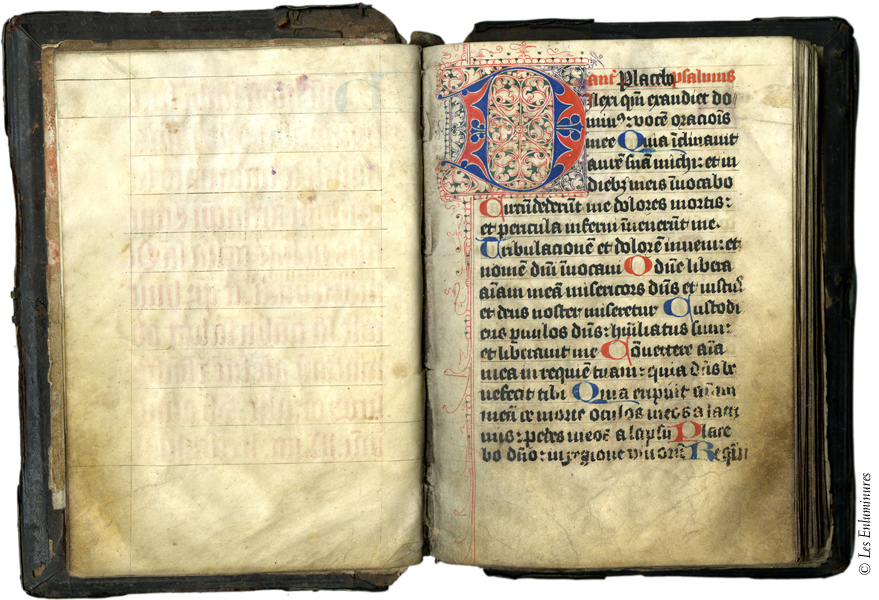 ant' Placebo psalmus
Dilexi qm̄ exaudiet do
minus vocē oracōis
mee Quia īclinavit
aurē suā michi: et in
dieb; meis īvocabo
Circūdederūt me dolores mortis:
et pericula inferni īvenerūt me.
Tribulacionē et dolorē inveni: et
nomē dn̄i īvocavi O dn̄e libera
aīam meā misericors dn̄s et iustus
et deus noster miseretur Custodi
ens pvulos dn̄s: hūiliatus sum:
et liberavit me Cōvertere aīa
mea in requiē tuam: quia dn̄s be
nefecit tibi Quia eripuit aīam
meā de morte oculos meos a lacri
mis: pedes meos a lapsu Place
bo dn̄o: in regione vivorū Requi
© Les Enluminures